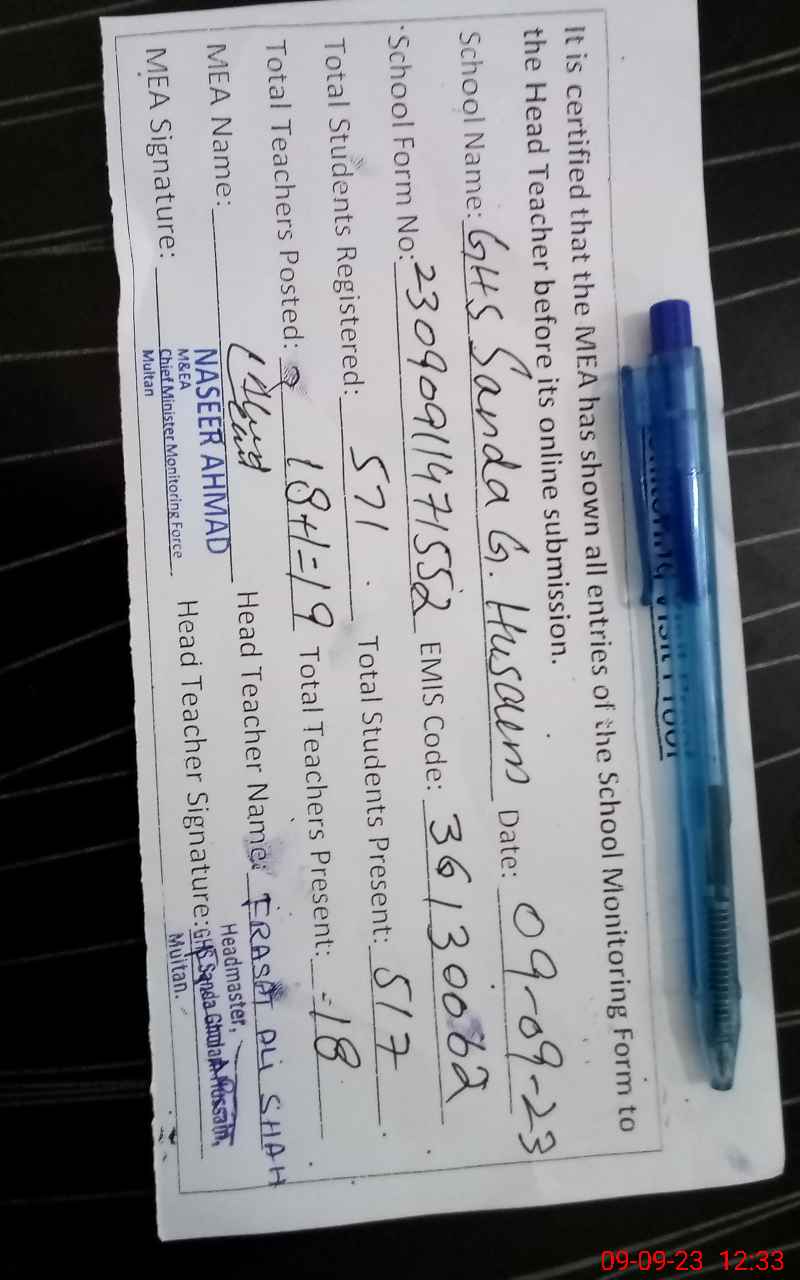 Monitoring Visit Proof
It is certified that the MEA has shown all entries of the School Monitoring Form to
the Head Teacher before its online submission.
School Name: GHS Sanda G. Husain Date: 09-09-23
School Form No: 23090911471552 EMIS Code: 36130062
Total Students Registered: 571 Total Students Present: 517
Total Teachers Posted: 18+1=19 Total Teachers Present: =18
MEA Name: NASEER AHMAD Head Teacher Name: FRASAT ALI SHAH
M&EA
Chief Minister Monitoring Force
Multan
MEA Signature: Head Teacher Signature:
Headmaster,
GHS Sanda Ghulam Hussain,
Multan.
09-09-23 12:33